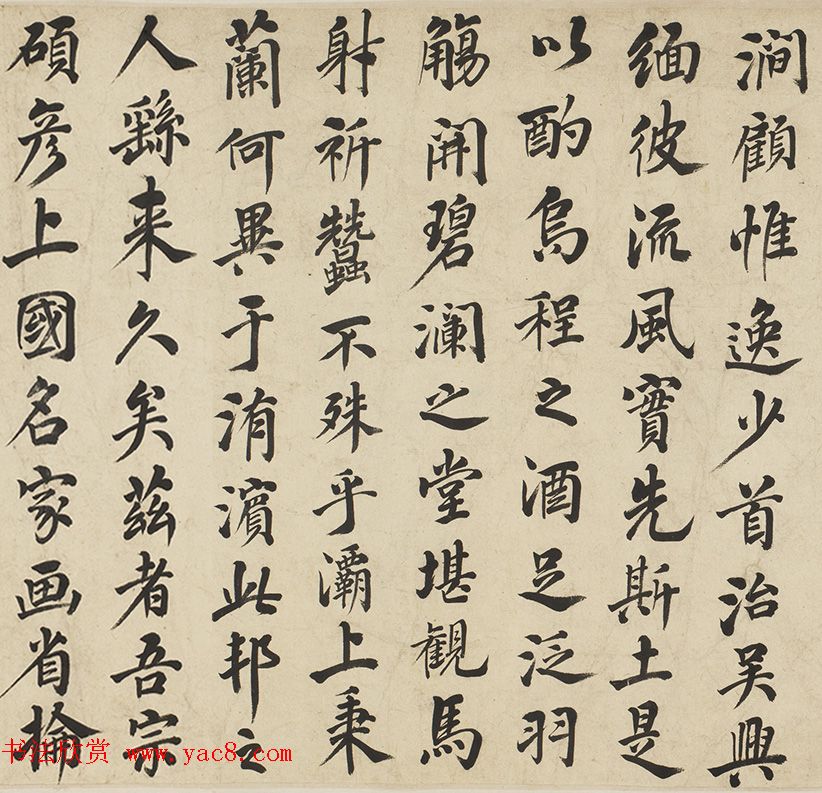 澗顧惟逸少首治吴興
缅彼流風實先斯土是
以酌烏程之酒足泛羽
觴開碧瀾之堂堪觀馬
射祈蠶不殊乎灞上秉
蘭何異于洧濱此邦之
人繇来久矣茲者吾宗
碩彦上國名家画省掄
书法欣赏 www.yac8.com